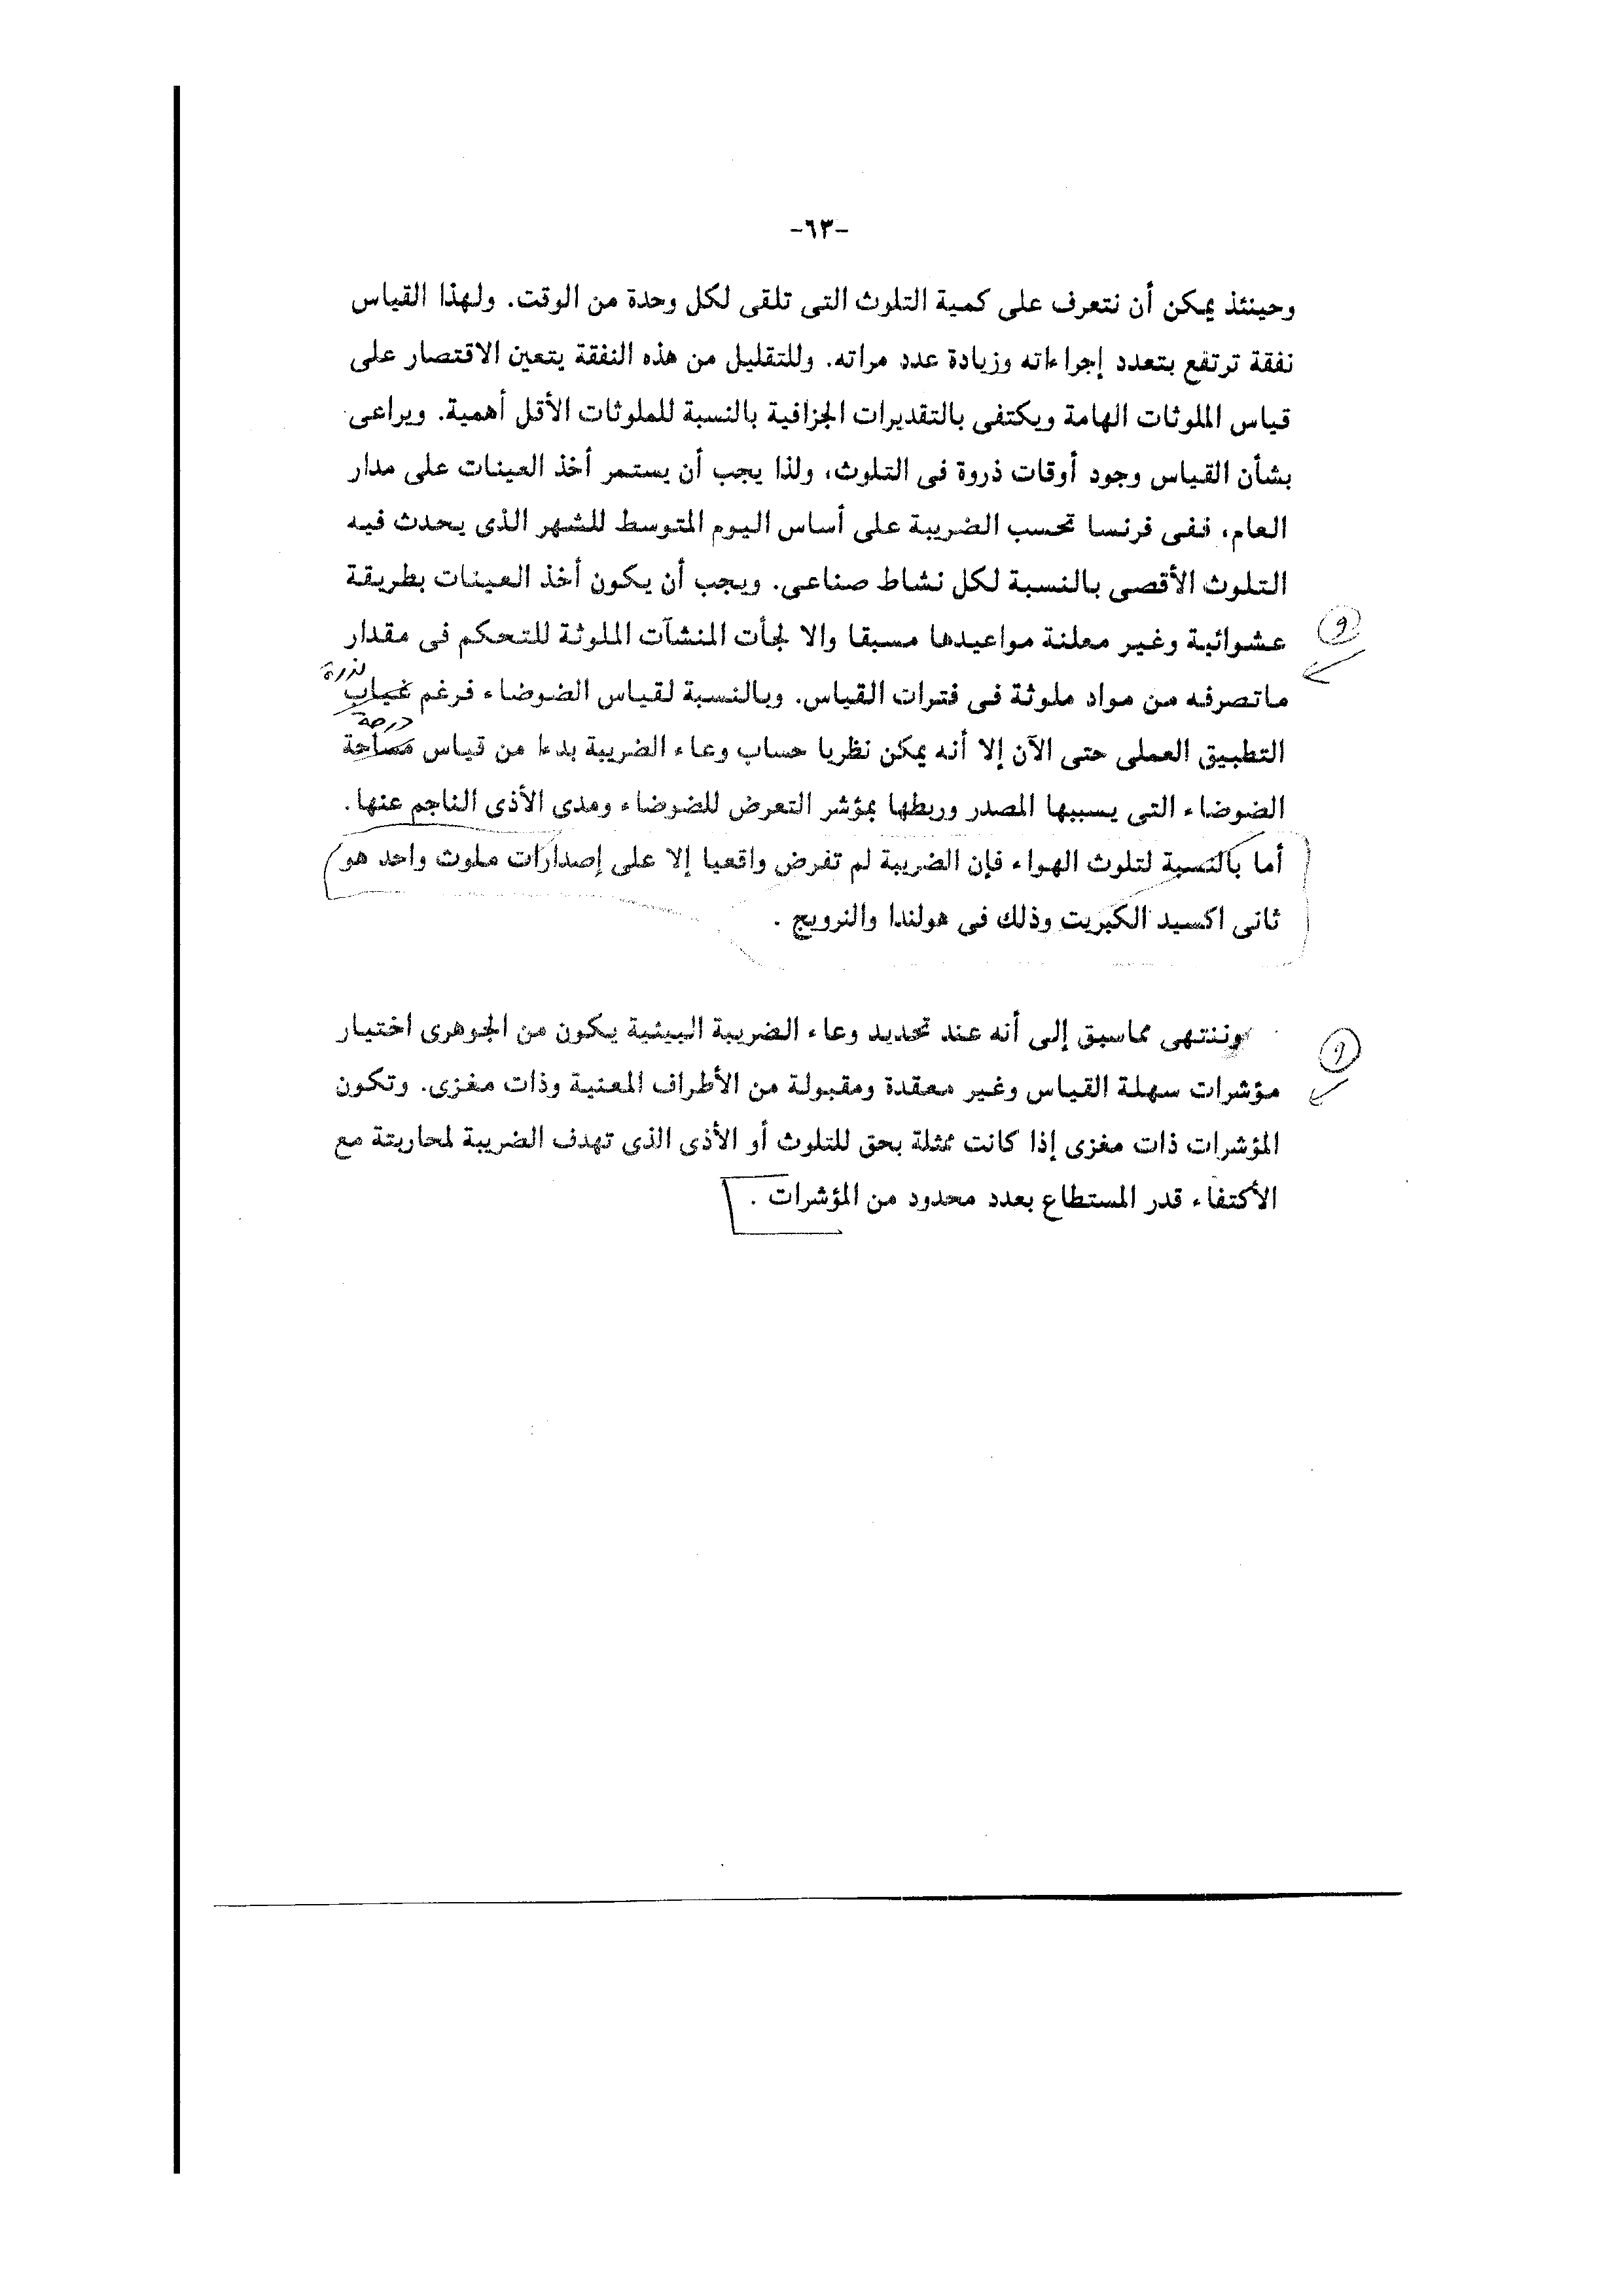 -٦٣-
وحينئذ يمكن أن نتعرف على كمية التلوث التى تلقى لكل وحدة من الوقت. ولهذا القياس
نفقة ترتفع بتعدد إجراءاته وزيادة عدد مراته. وللتقليل من هذه النفقة يتعين الاقتصار على
قياس الملوثات الهامة ويكتفى بالتقديرات الجزافية بالنسبة للملوثات الأقل أهمية. ويراعى
بشأن القياس وجود أوقات ذروة فى التلوث، ولذا يجب أن يستمر أخذ العينات على مدار
العام، ففى فرنسا تحسب الضريبة على أساس اليوم المتوسط للشهر الذى يحدث فيه
التلوث الأقصى بالنسبة لكل نشاط صناعى. ويجب أن يكون أخذ العينات بطريقة
عشوائية وغير معلنة مواعيدها مسبقا والا لجأت المنشآت الملوثة للتحكم فى مقدار
ندرة
ماتصرفه من مواد ملوثة فى فترات القياس. وبالنسبة لقياس الضوضاء فرغم غياب
درجة
التطبيق العملى حتى الآن إلا أنه يمكن نظريا حساب وعاء الضريبة بدءا من قياس مساحة
الضوضاء التى يسببها المصدر وربطها بمؤشر التعرض للضوضاء ومدى الأذى الناجم عنها.
أما بالنسبة لتلوث الهواء فإن الضريبة لم تفرض واقعيا إلا على إصدارات ملوث واحد هو
ثانى اكسيد الكبريت وذلك فى هولندا والنرويج .
وننتهى مماسبق إلى أنه عند تحديد وعاء الضريبة البيئية يكون من الجوهرى اختيار
مؤشرات سهلة القياس وغير معقدة ومقبولة من الأطراف المعنية وذات مغزى. وتكون
المؤشرات ذات مغزى إذا كانت ممثلة بحق للتلوث أو الأذى الذى تهدف الضريبة لمحاربتة مع
الأكتفاء قدر المستطاع بعدد محدود من المؤشرات .